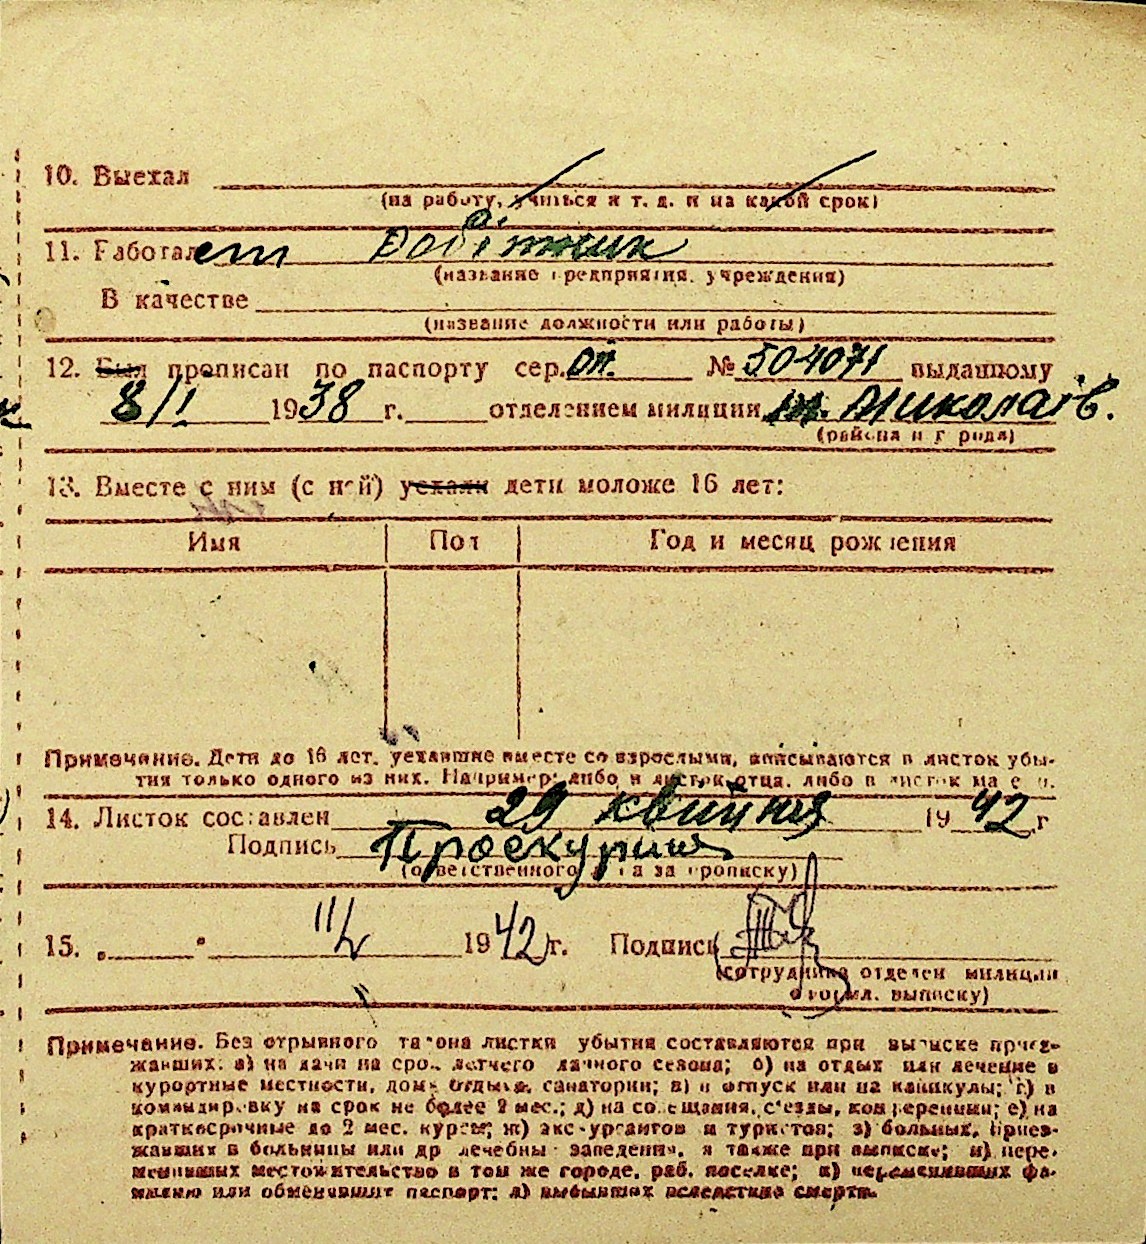 10. Выехал
(на работу, учиться и т. д. и на какой срок)
11. Работает Робітник
(название предприятия, учреждения)
В качестве
(название должности или работы)
12. Был прописан по паспорту сер. № 504071 выданному
8/I 1938 г. отделением милиции м. Миколаїв.
(района и города)
13. Вместе с ним (с ней) уехали дети моложе 16 лет:
Имя Пол Год и месяц рождения
Примечание. Дети до 16 лет, уехавшие вместе со взрослыми, вписываются в листок убы-
тия только одного из них. Например: либо в листок отца, либо в листок матери.
14. Листок составлен 29 квітня 1942 г
Подпись Проскурина
(ответственного лица за прописку)
15. „ “ 1942 г. Подпись
(сотрудника отделен милиции
оформл. выписку)
Примечание. Без отрывного талона листки убытия составляются при выписке приез-
жавших: а) на дачи на срок летнего дачного сезона; б) на отдых или лечение в
курортные местности, дома отдыха, санатории; в) в отпуск или на каникулы; г) в
командировку на срок не более 2 мес.; д) на совещания, съезды, конференции; е) на
краткосрочные до 2 мес. курсы; ж) экскурсантов и туристов; з) больных, приез-
жавших в больницы или др лечебны заведения, а также при выписке; и) пере-
менивших местожительство в том же городе, раб. поселке; к) переменивших фа-
милию или обменявших паспорт; л) выбывших вследствие смерти.